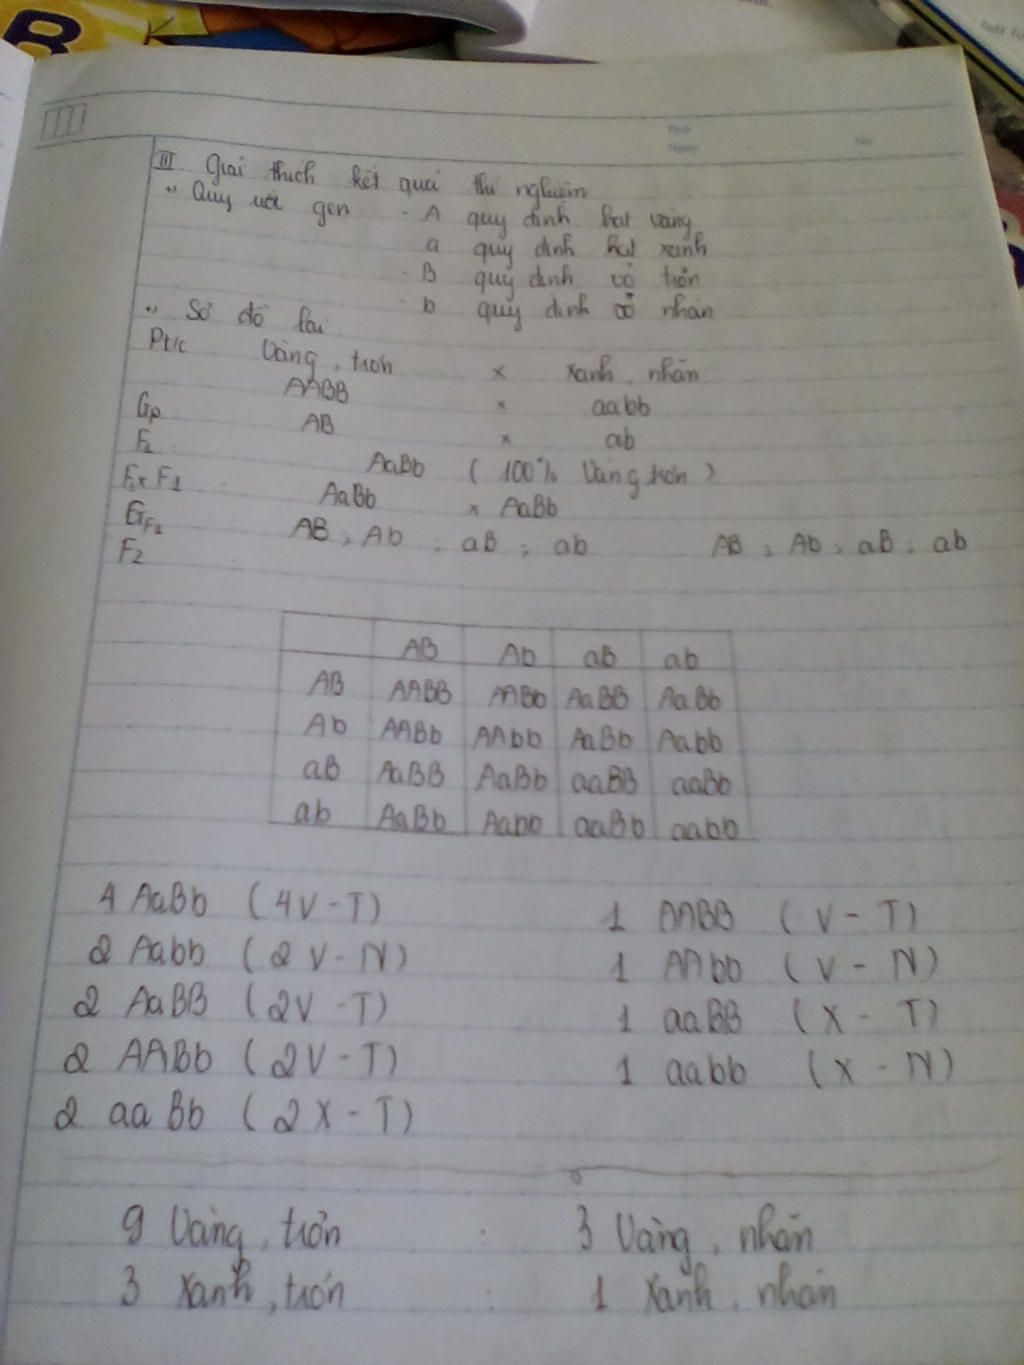 B
Thứ
Ngày
No
III Giải thích kết quả thí nghiệm
Quy ước gen - A quy định hạt vàng
a quy định hạt xanh
- B quy định vỏ trơn
- b quy định vỏ nhăn
Sơ đồ lai
Pt/c Vàng, trơn x xanh, nhăn
AABB x aabb
Gp AB x ab
F1 AaBb (100% Vàng trơn)
F1 x F1 AaBb x AaBb
GF1 AB, Ab, aB, ab AB, Ab, aB, ab
F2
AB Ab aB ab
AB AABB AABb AaBB AaBb
Ab AABb AAbb AaBb Aabb
aB AaBB AaBb aaBB aaBb
ab AaBb Aabb aaBb aabb
4 AaBb (4V-T) 1 AABB (V-T)
2 Aabb (2V-N) 1 AAbb (V-N)
2 AaBB (2V-T) 1 aaBB (X-T)
2 AABb (2V-T) 1 aabb (X-N)
2 aaBb (2X-T)
9 Vàng, trơn : 3 Vàng, nhăn
3 Xanh, trơn : 1 Xanh, nhăn